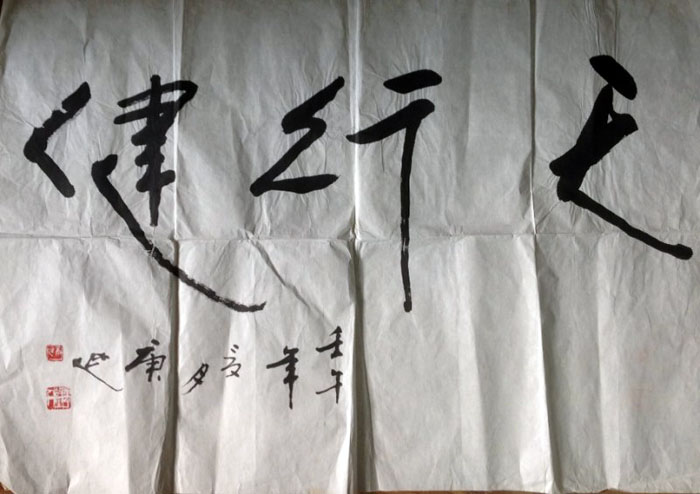 天行健
壬午年夏夕庚